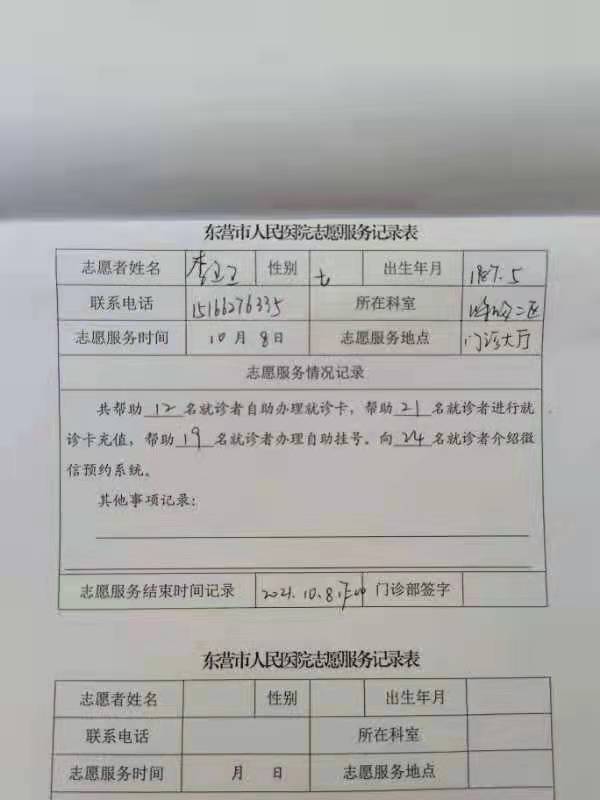 东营市人民医院志愿服务记录表
志愿者姓名 李 性别 女 出生年月 1987.5
联系电话 15166276335 所在科室 二区
志愿服务时间 10月8日 志愿服务地点 门诊大厅
志愿服务情况记录
共帮助12名就诊者自助办理就诊卡，帮助21名就诊者进行就
诊卡充值，帮助19名就诊者办理自助挂号。向24名就诊者介绍微
信预约系统。
其他事项记录：
志愿服务结束时间记录 2021.10.8 门诊部签字
东营市人民医院志愿服务记录表
志愿者姓名 性别 出生年月
联系电话 所在科室
志愿服务时间 月 日 志愿服务地点